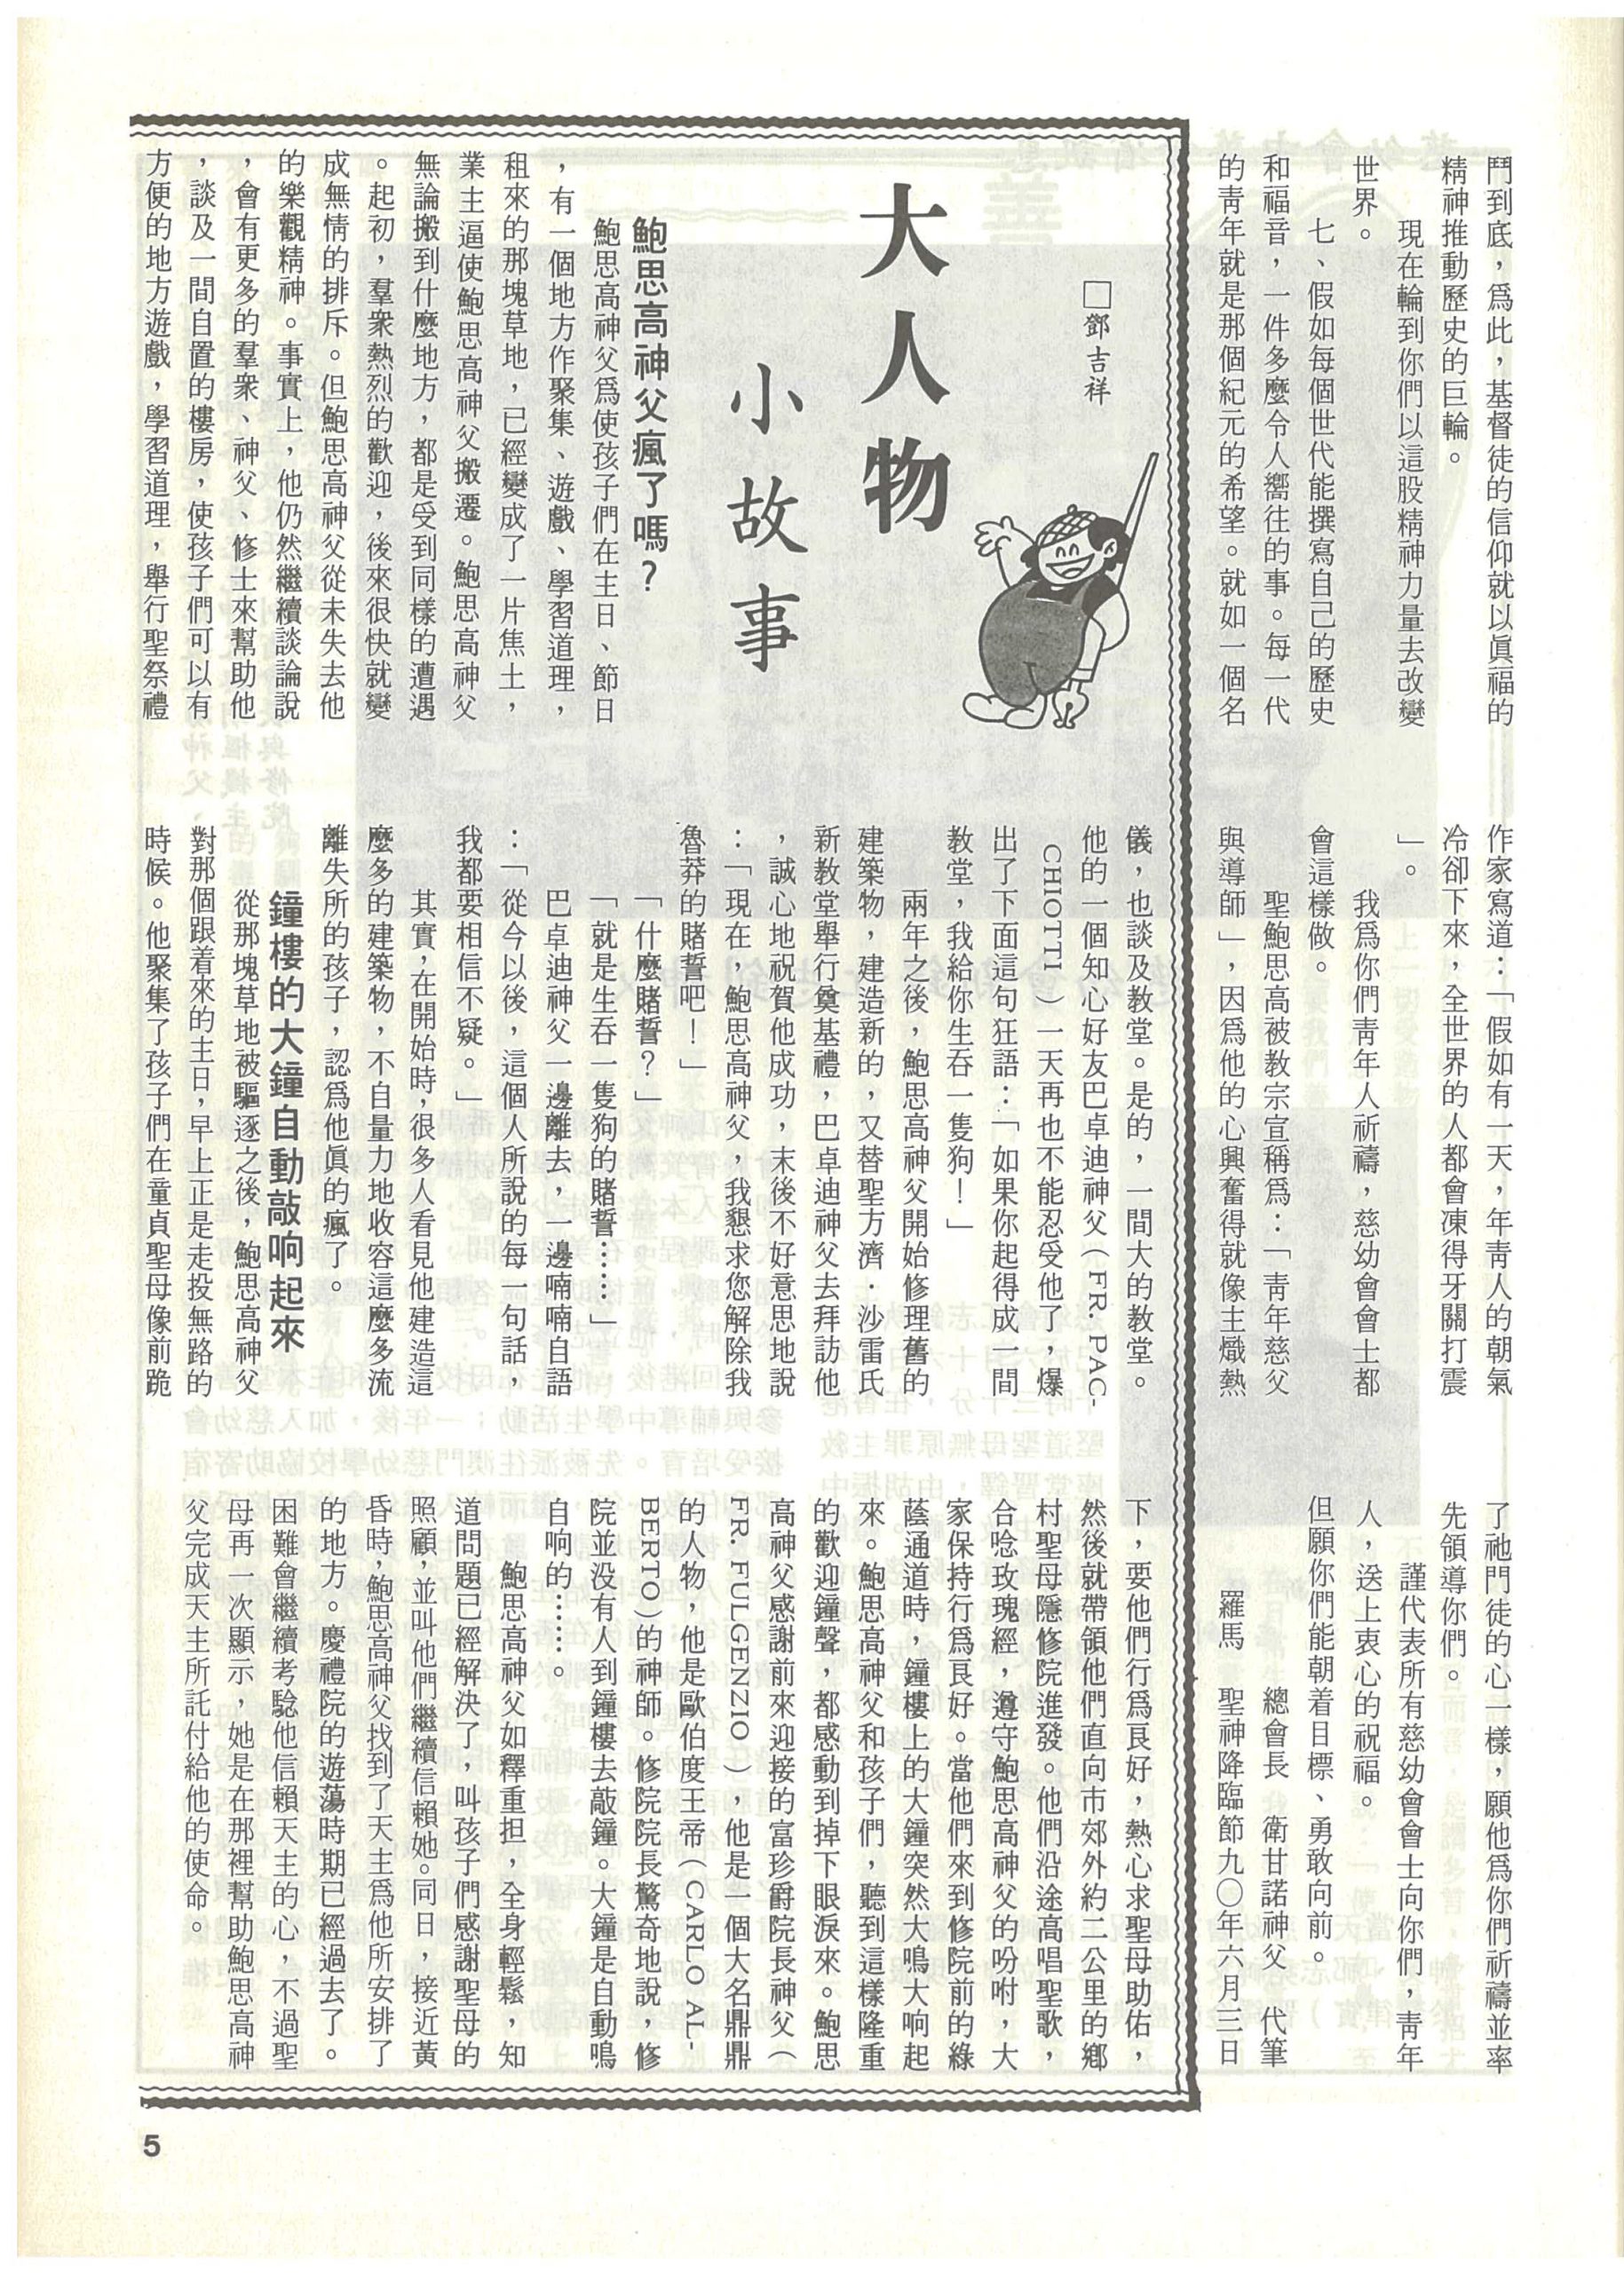 鬥到底，爲此，基督徒的信仰就以眞福的
精神推動歷史的巨輪。
現在輪到你們以這股精神力量去改變
世界。
七、假如每個世代能撰寫自己的歷史
和福音，一件多麼令人嚮往的事。每一代
的靑年就是那個紀元的希望。就如一個名
作家寫道：「假如有一天，年靑人的朝氣
冷卻下來，全世界的人都會凍得牙關打震
」。
我爲你們靑年人祈禱，慈幼會會士都
會這樣做。
聖鮑思高被教宗宣稱爲：「靑年慈父
與導師」，因爲他的心興奮得就像主熾熱
了祂門徒的心一樣，願他爲你們祈禱並率
先領導你們。
謹代表所有慈幼會會士向你們，靑年
人，送上衷心的祝福。
但願你們能朝着目標、勇敢向前。
總會長　衛甘諾神父　代筆
羅馬　聖神降臨節九〇年六月三日
大人物
小故事
□鄧吉祥
鮑思高神父瘋了嗎？
鮑思高神父爲使孩子們在主日、節日
，有一個地方作聚集、遊戲、學習道理，
租來的那塊草地，已經變成了一片焦土，
業主逼使鮑思高神父搬遷。鮑思高神父
無論搬到什麼地方，都是受到同樣的遭遇
。起初，羣衆熱烈的歡迎，後來很快就變
成無情的排斥。但鮑思高神父從未失去他
的樂觀精神。事實上，他仍然繼續談論說
，會有更多的羣衆、神父、修士來幫助他
，談及一間自置的樓房，使孩子們可以有
方便的地方遊戲，學習道理，舉行聖祭禮
儀，也談及教堂。是的，一間大的教堂。
他的一個知心好友巴卓迪神父（FR. PAC-
CHIOTTI）一天再也不能忍受他了，爆
出了下面這句狂語：「如果你起得成一間
教堂，我給你生吞一隻狗！」
兩年之後，鮑思高神父開始修理舊的
建築物，建造新的，又替聖方濟．沙雷氏
新教堂舉行奠基禮，巴卓迪神父去拜訪他
，誠心地祝賀他成功，末後不好意思地說
：「現在，鮑思高神父，我懇求您解除我
魯莽的賭誓吧！」
「什麼賭誓？」
「就是生吞一隻狗的賭誓……」
巴卓迪神父一邊離去，一邊喃喃自語
：「從今以後，這個人所說的每一句話，
我都要相信不疑。」
其實，在開始時，很多人看見他建造這
麼多的建築物，不自量力地收容這麼多流
離失所的孩子，認爲他眞的瘋了。
鐘樓的大鐘自動敲响起來
從那塊草地被驅逐之後，鮑思高神父
對那個跟着來的主日，早上正是走投無路的
時候。他聚集了孩子們在童貞聖母像前跪
下，要他們行爲良好，熱心求聖母助佑，
然後就帶領他們直向市郊外約二公里的鄉
村聖母隱修院進發。他們沿途高唱聖歌，
合唸玫瑰經，遵守鮑思高神父的吩咐，大
家保持行爲良好。當他們來到修院前的綠
蔭通道時，鐘樓上的大鐘突然大鳴大响起
來。鮑思高神父和孩子們，聽到這樣隆重
的歡迎鐘聲，都感動到掉下眼淚來。鮑思
高神父感謝前來迎接的富珍爵院長神父（
FR. FULGENZIO），他是一個大名鼎鼎
的人物，他是歐伯度王帝（CARLO AL-
BERTO)的神師。修院院長驚奇地說，修
院並没有人到鐘樓去敲鐘。大鐘是自動鳴
自响的……。
鮑思高神父如釋重担，全身輕鬆，知
道問題已經解決了，叫孩子們感謝聖母的
照顧，並叫他們繼續信賴她。同日，接近黃
昏時，鮑思高神父找到了天主爲他所安排了
的地方。慶禮院的遊蕩時期已經過去了。
困難會繼續考驗他信賴天主的心，不過聖
母再一次顯示，她是在那裡幫助鮑思高神
父完成天主所託付給他的使命。
5